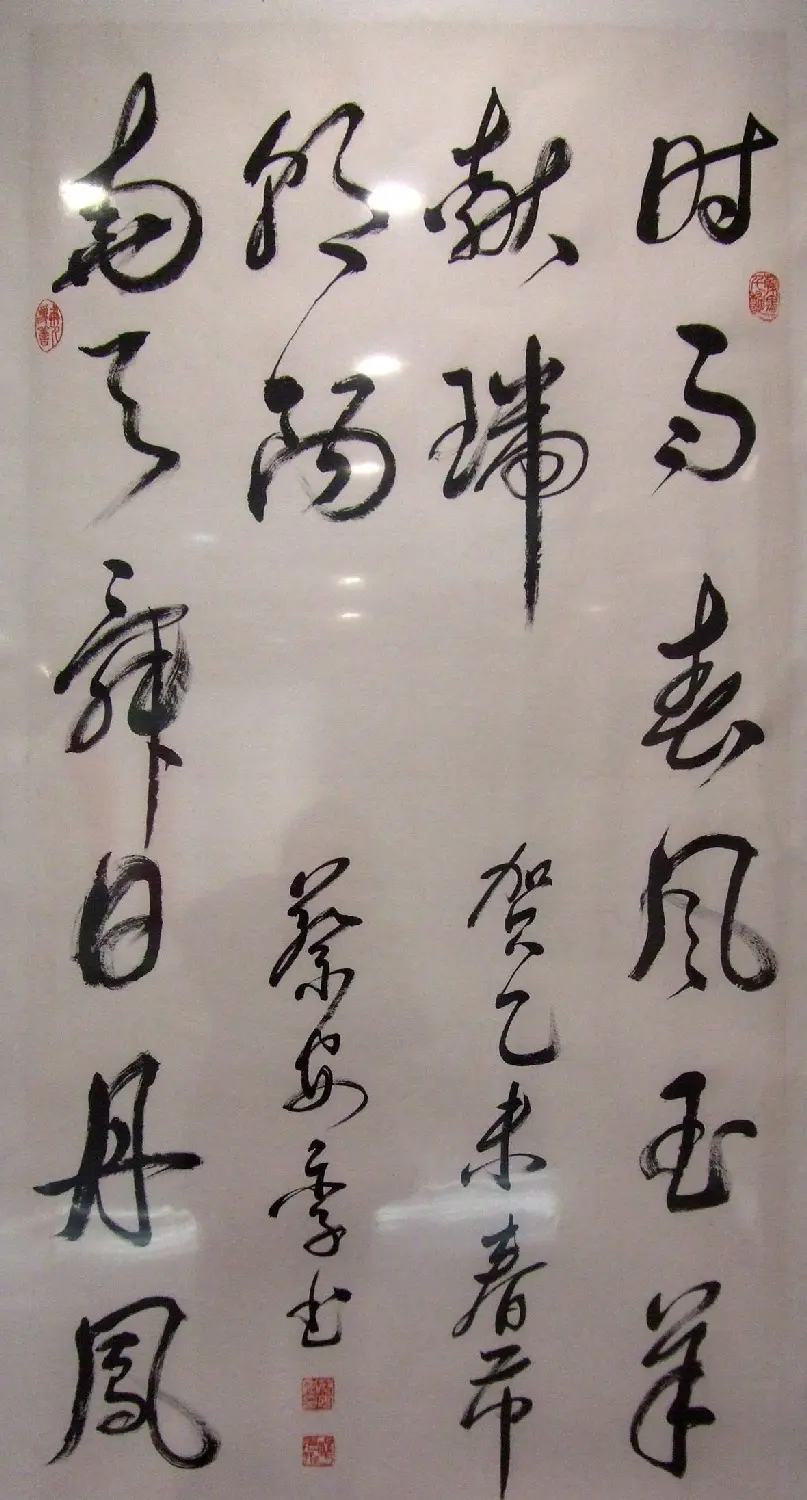 时雨春风玉羊
献瑞
尧天舜日丹鳳
朝陽
贺乙未春节
蔡安季书